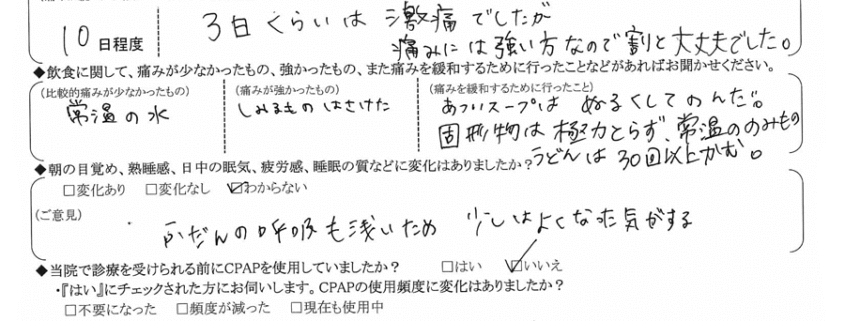 10日程度
3日くらいは激痛でしたが
痛みには強い方なので割と大丈夫でした。
◆飲食に関して、痛みが少なかったもの、強かったもの、また痛みを緩和するために行ったことなどがあればお聞かせください。
(比較的痛みが少なかったもの)
常温の水
(痛みが強かったもの)
しみるものはさけた
(痛みを緩和するために行ったこと)
あついスープはぬるくしてのんだ。
固形物は極力とらず、常温ののみもの
うどんは30回以上かむ。
◆朝の目覚め、熟睡感、日中の眠気、疲労感、睡眠の質などに変化はありましたか?
□変化あり □変化なし ☑わからない
(ご意見)
ふだんの呼吸も浅いため 少しはよくなった気がする
◆当院で診療を受けられる前にCPAPを使用していましたか? □はい ☑いいえ
・『はい』にチェックされた方にお伺いします。CPAPの使用頻度に変化はありましたか?
□不要になった □頻度が減った □現在も使用中